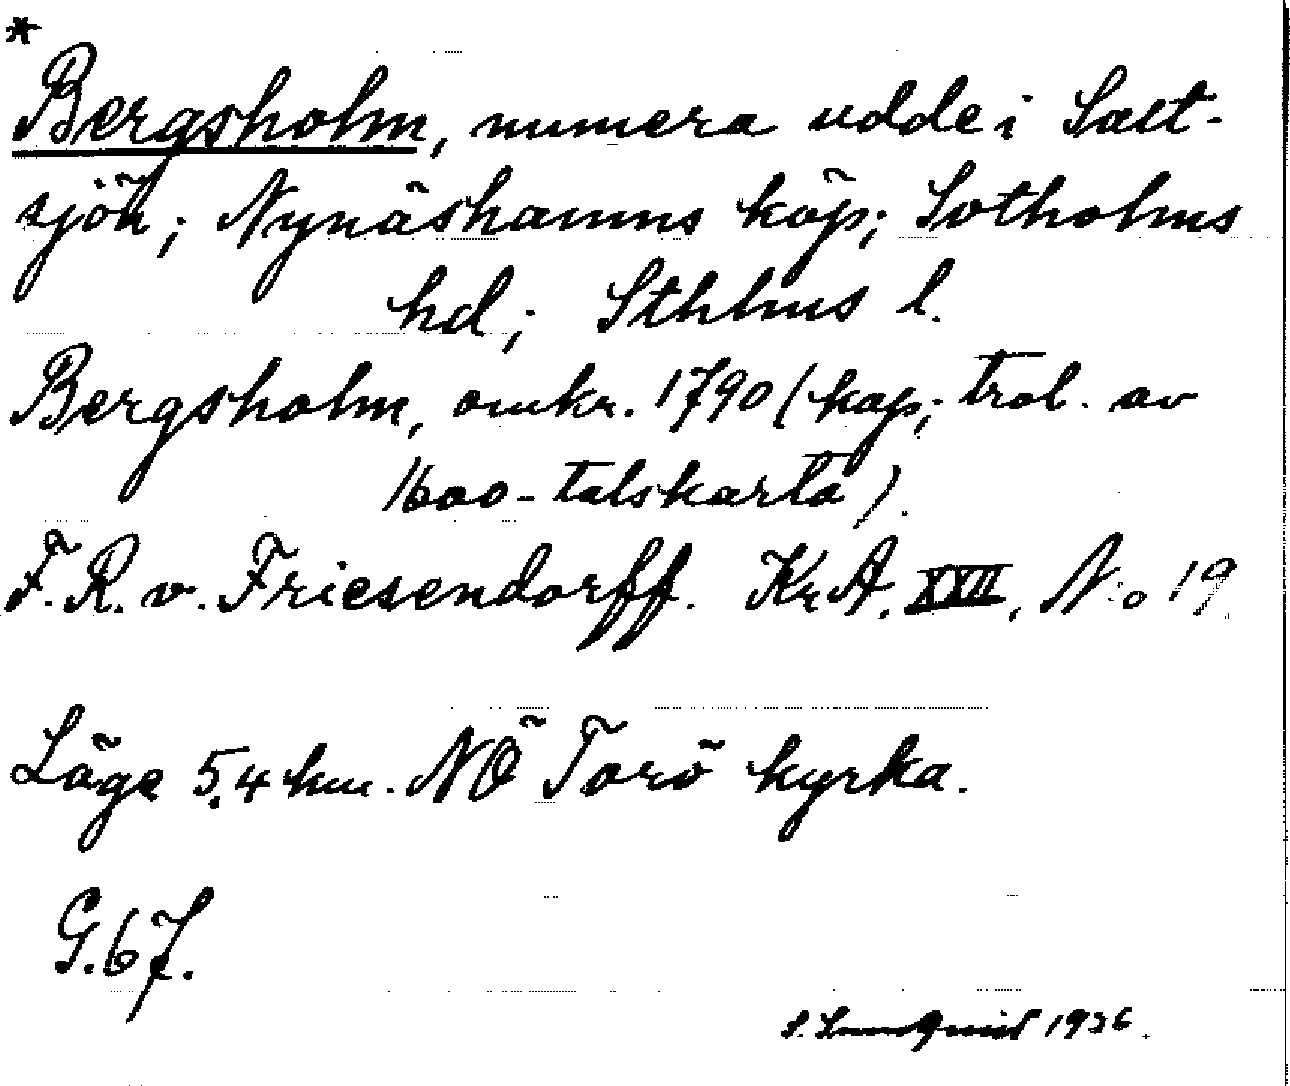 *
Bergsholm, numera udde i Salt-
sjön; Nynäshamns köp; Sotholms
hd; Sthlms l.
Bergsholm, omkr. 1790 (kop; trol. av
1600-talskarta).
F. R. v. Friesendorff. KrA. XXII, N:o 19
Läge 5,4 km. NÖ Torö kyrka.
G.67.
S. Lundquist 1936.